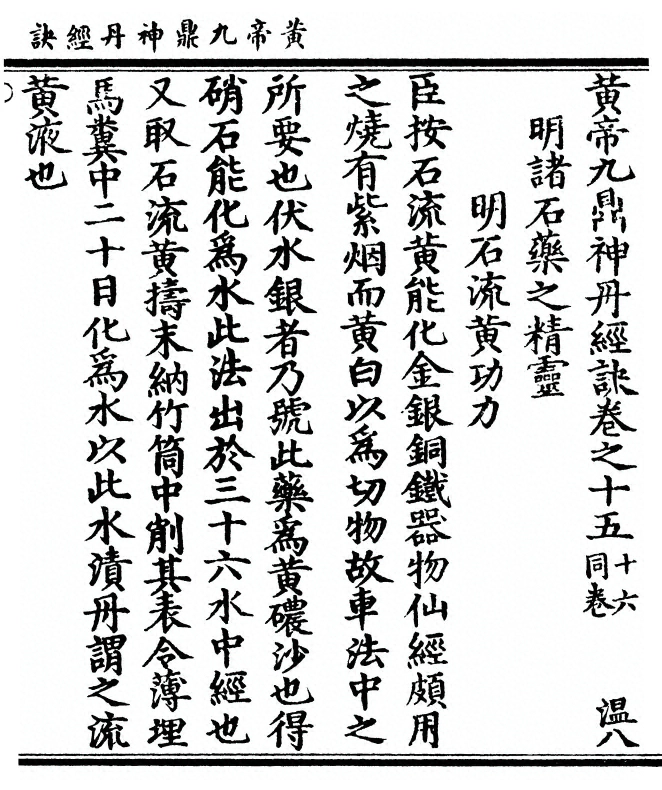 黃帝九鼎神丹經訣
黃帝九鼎神丹經訣卷之十五 十六同卷 温八
明諸石藥之精靈
明石流黃功力
臣按石流黃能化金銀銅鐵器物仙經頗用
之燒有紫烟而黃白以爲切物故車法中之
所要也伏水銀者乃號此藥爲黃沙也得
硝石能化爲水此法出於三十六水中經也
又取石流黃擣末納竹筒中削其表令薄埋
馬糞中二十日化爲水以此水漬丹謂之流
黃液也